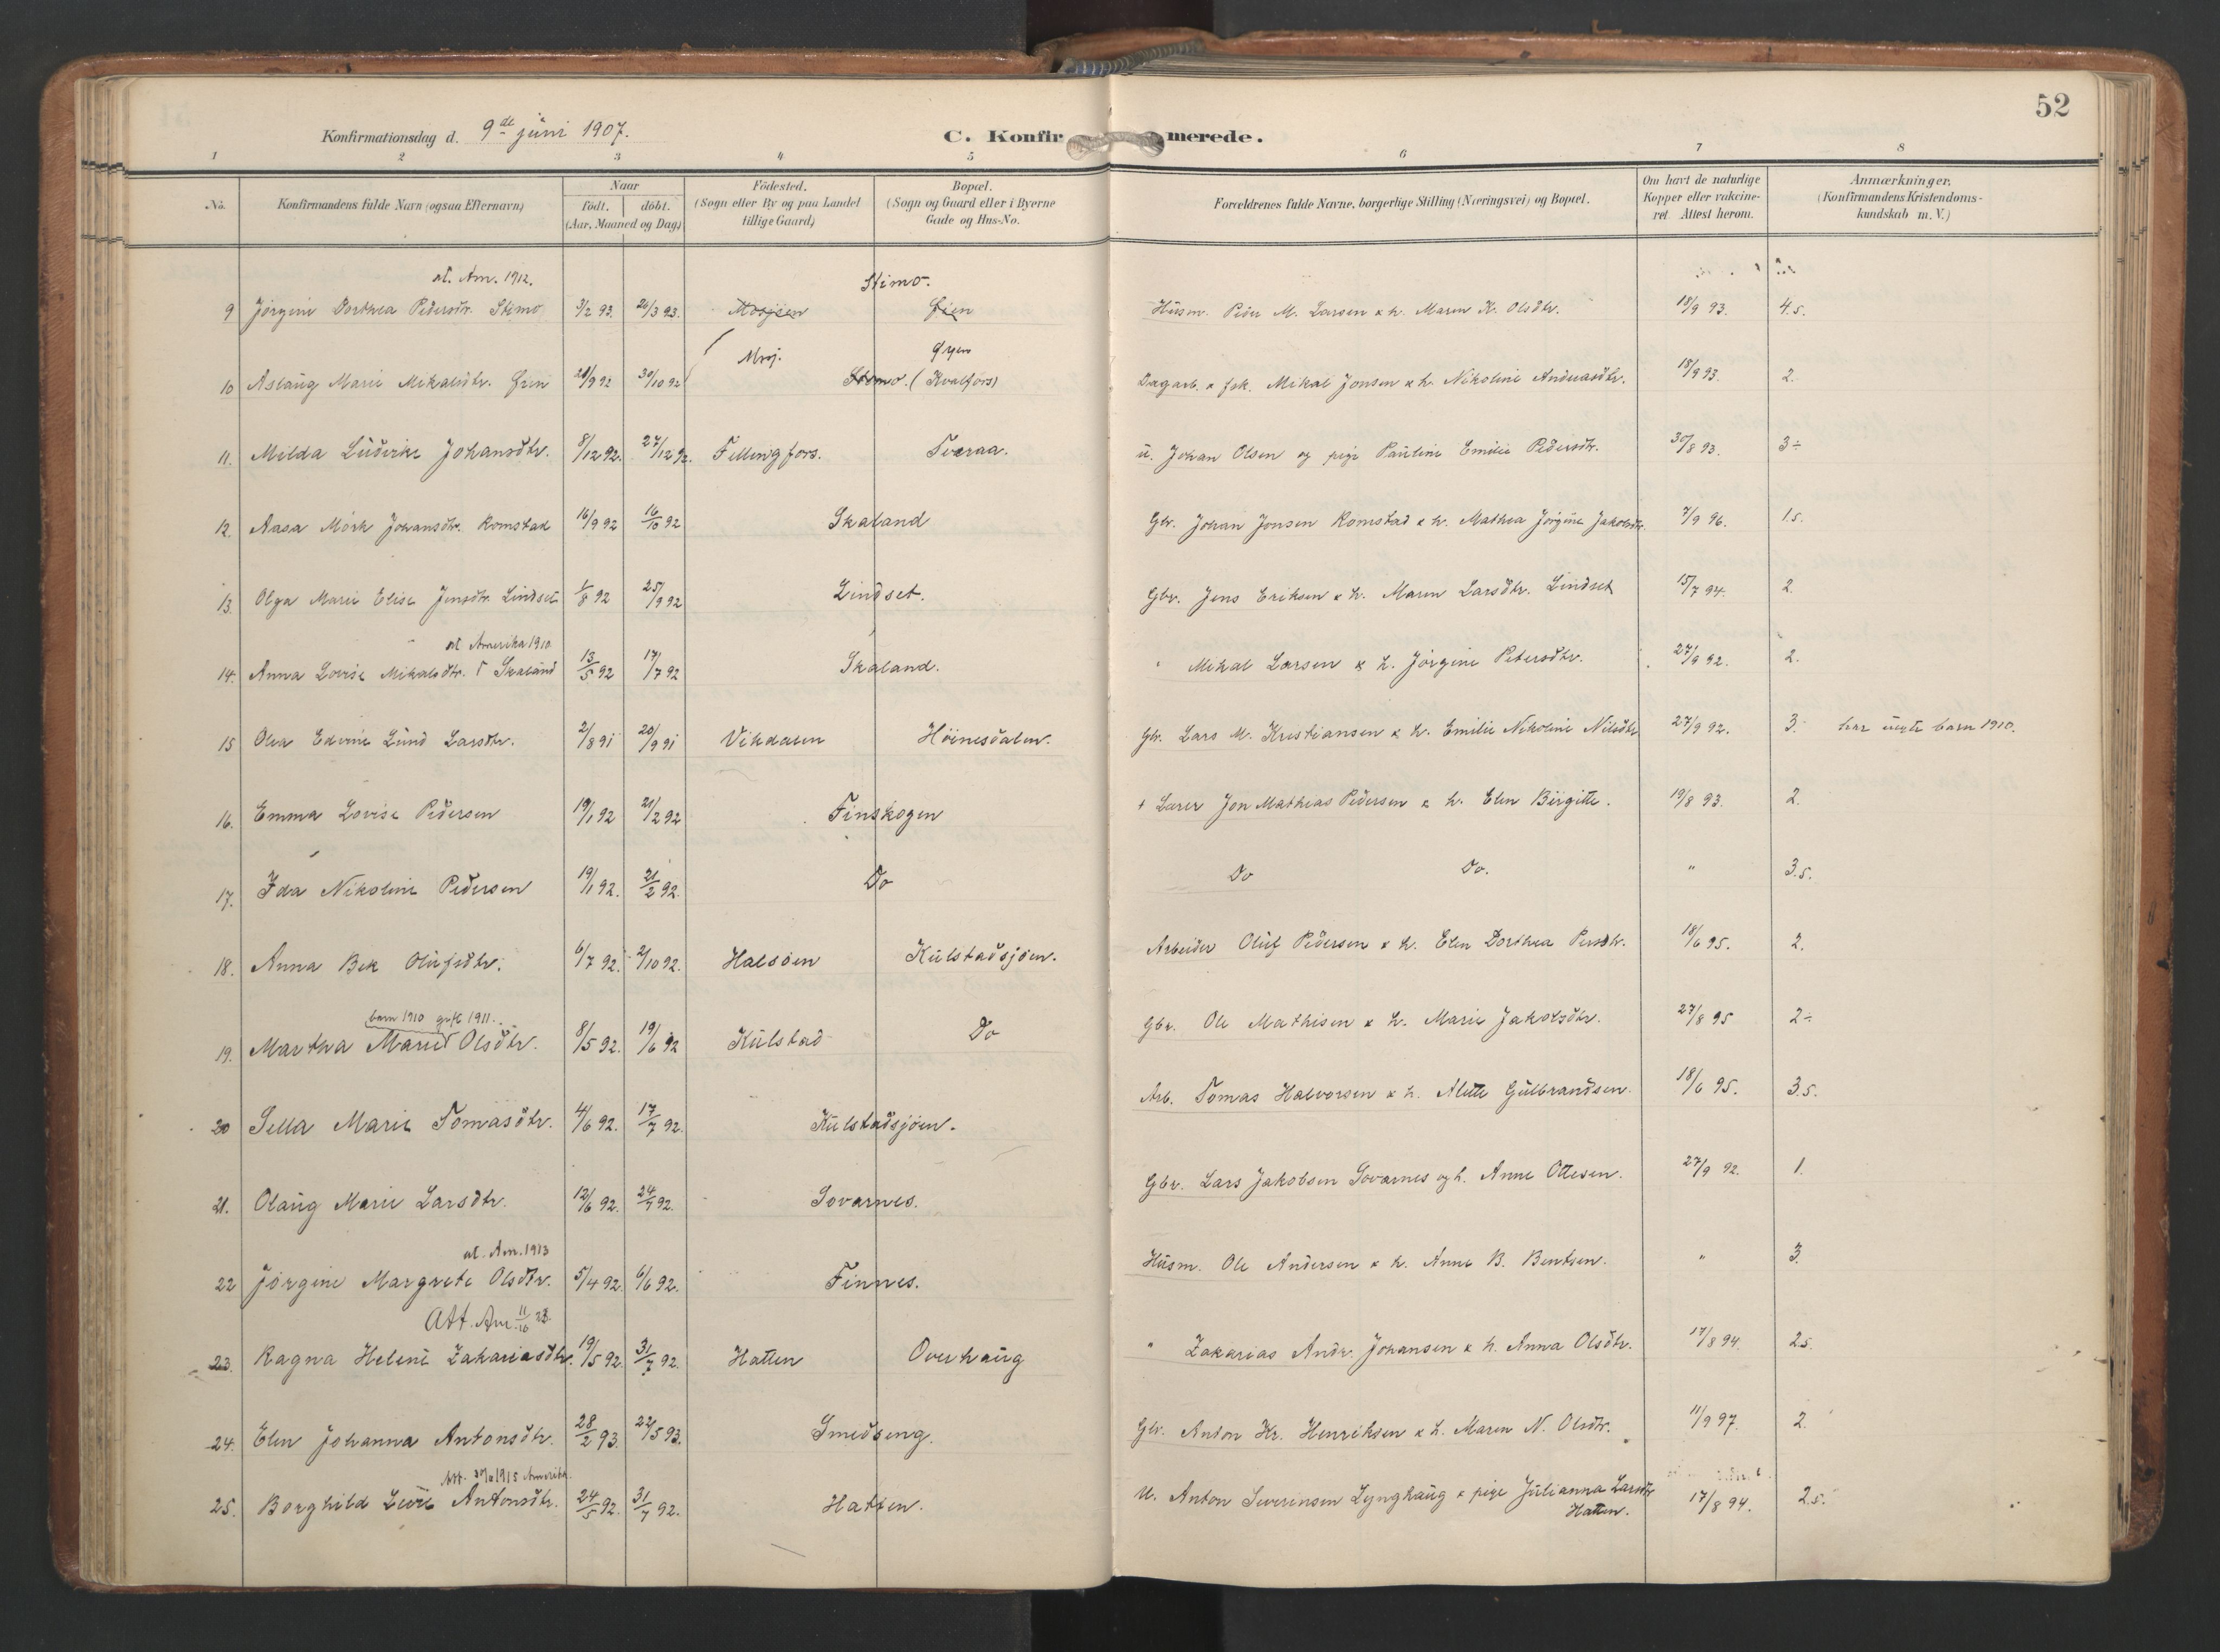 52
Konfirmationsdag d. 9de juni 1907.
C. Konfirmerede.
1 2 3 4 5 6 7 8
No.
Konfirmandens fulde Navn (ogsaa Efternavn)
Naar
Födt. döbt.
(Aar, Maaned og Dag)
Födested.
(Sogn eller By og paa Landet
tillige Gaard)
Bopæl.
(Sogn og Gaard eller i Byerne
Gade og Hus-No.
Forældrenes fulde Navne, borgerlige Stilling (Næringsvei) og Bopæl.
Om havt de naturlige
Kopper eller vakcine-
ret Attest herom.
Anmærkninger.
(Konfirmandens Kristendoms-
kundskab m. V.)
at. Am. 1912.
Stimo.
9 Jörgine Dorthea Pedersdtr. Stimo 3/2 93. 26/3 93. Mosjöen Husm. Peder M. Larsen & h. Maren K. Olsdtr. 18/9 93. 4.5.
Mosj.
10 Aslaug Marie Mikalsdtr. 30/10 92 Stimo. (Kvalfors) Dagarb. & fsk. Mikal Jonsen & h. Nikoline Andreasdtr. 18/9 93. 2.
11. Milda Ludvika Johansdtr. 8/12 92. 27/12 92. Fellingfors. Tveraa. u. Johan Olsen og pige Pauline Emilie Pedersdtr. 30/8 93. 3÷
12. Aasa Mörk Johansdtr. Romstad 16/9 92 16/10 92 Skaland Gbr. Johan Jonsen Romstad & h. Mathea Jörgine Jakobsdtr. 7/9 96. 1.5.
13. Olga Marie Elise Jensdtr. Lindset 1/8 92 25/9 92 Lindset. Gbr. Jens Eriksen & h. Maren Larsdtr. Lindset 15/7 94. 2.
at Amerika 1910
14. Anna Lovise Mikalsdtr. Skaland 13/5 92 17/7 92 Skaland. " Mikal Larsen & h. Jörgine Petersdtr. 27/9 92. 2.
15 Olea Edvine Lund Larsdtr. 2/8 91 20/9 91 Vikdalen Höinesdalen. Gbr. Lars M. Kristiansen & h. Emilie Nikoline Nilsdtr. 27/9 92. 3. har uegte barn 1910.
16. Emma Lovise Pedersen 19/1 92 21/2 92 Finskogen + Lærer Jon Mathias Pedersen & h. Elen Birgitte. 19/8 93. 2.
17. Ida Nikoline Pedersen 19/1 92. 21/2 92. Do Do Do. " 3.5.
18. Anna Bek Olufsdtr. 6/7 92. 2/10 92. Halsöen Kulstadsjöen. Arbeider Oluf Pedersen & h. Elen Dorthea Persdtr. 18/6 95. 2.
barn 1910 gift 1911.
19. Martha Marie Olsdtr. 8/5 92. 19/6 92 Kulstad Do Gbr. Ole Mathisen & h. Marie Jakobsdtr. 27/8 95 2÷
20 Sella Marie Tomasdtr. 4/6 92. 17/7 92. Kulstadsjöen. Arb. Tomas Halvorsen & h. Alette Gulbrandsen. 18/6 95. 3.5.
21. Olaug Marie Larsdtr. 12/6 92. 24/7 92. Sovarnes. Gbr. Lars Jakobsen Sovarnes og h. Anne Ottesen. 27/9 92. 1.
at. Am. 1913
22 Jörgine Margrete Olsdtr. 5/4 92. 6/6 92. Finnes. Husm. Ole Andersen & h. Anne B. Bentsen. " 3.
Att. Am. 11/10
23. Ragna Heleni Zakariasdtr. 19/5 92. 31/7 92. Hatten Overhaug " Zakarias Andr. Johansen & h. Anna Olsdtr. 17/8 94. 2.5.
24. Elen Johanna Antonsdtr. 28/2 93. 22/5 93. Smedseng. Gbr. Anton Kr. Henriksen & h. Maren N. Olsdtr. 11/9 97. 2.
Att. 1915 Amerika.
25. Borghild Antonsdtr. 24/5 92. 31/7 92. Hatten. U. Anton Severinsen Lynghaug & pige Julianna Larsdtr
Hatten. 17/8 94. 2.5.